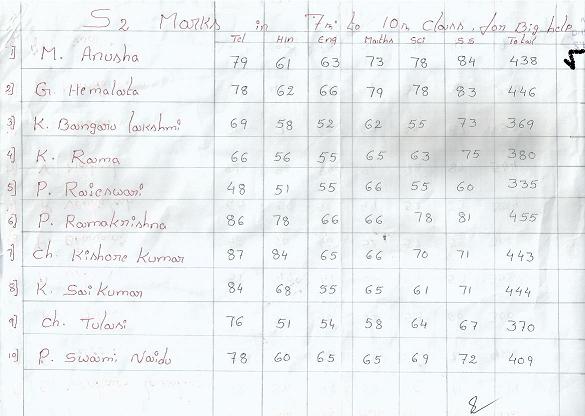 S2 Marks in 7th to 10th Class, for Big help
Tel Hin Eng Maths Sci S S Total
1] M. Anusha 79 61 63 73 78 84 438
2] G. Hemalata 78 62 66 79 78 83 446
3] K. Bangaru laikshmi 69 58 52 62 55 73 369
4] K. Rama 66 56 55 65 63 75 380
5] P. Rajeswari 48 51 55 66 55 60 335
6] P. Ramakrishna 86 78 66 66 78 81 455
7] Ch. Kishore Kumar 87 84 65 66 70 71 443
8] K. Sai Kumar 84 68 55 65 61 71 444
9] Ch. Tulasi 76 51 54 58 64 67 370
10] P. Swami Naidu 78 60 65 65 69 72 409